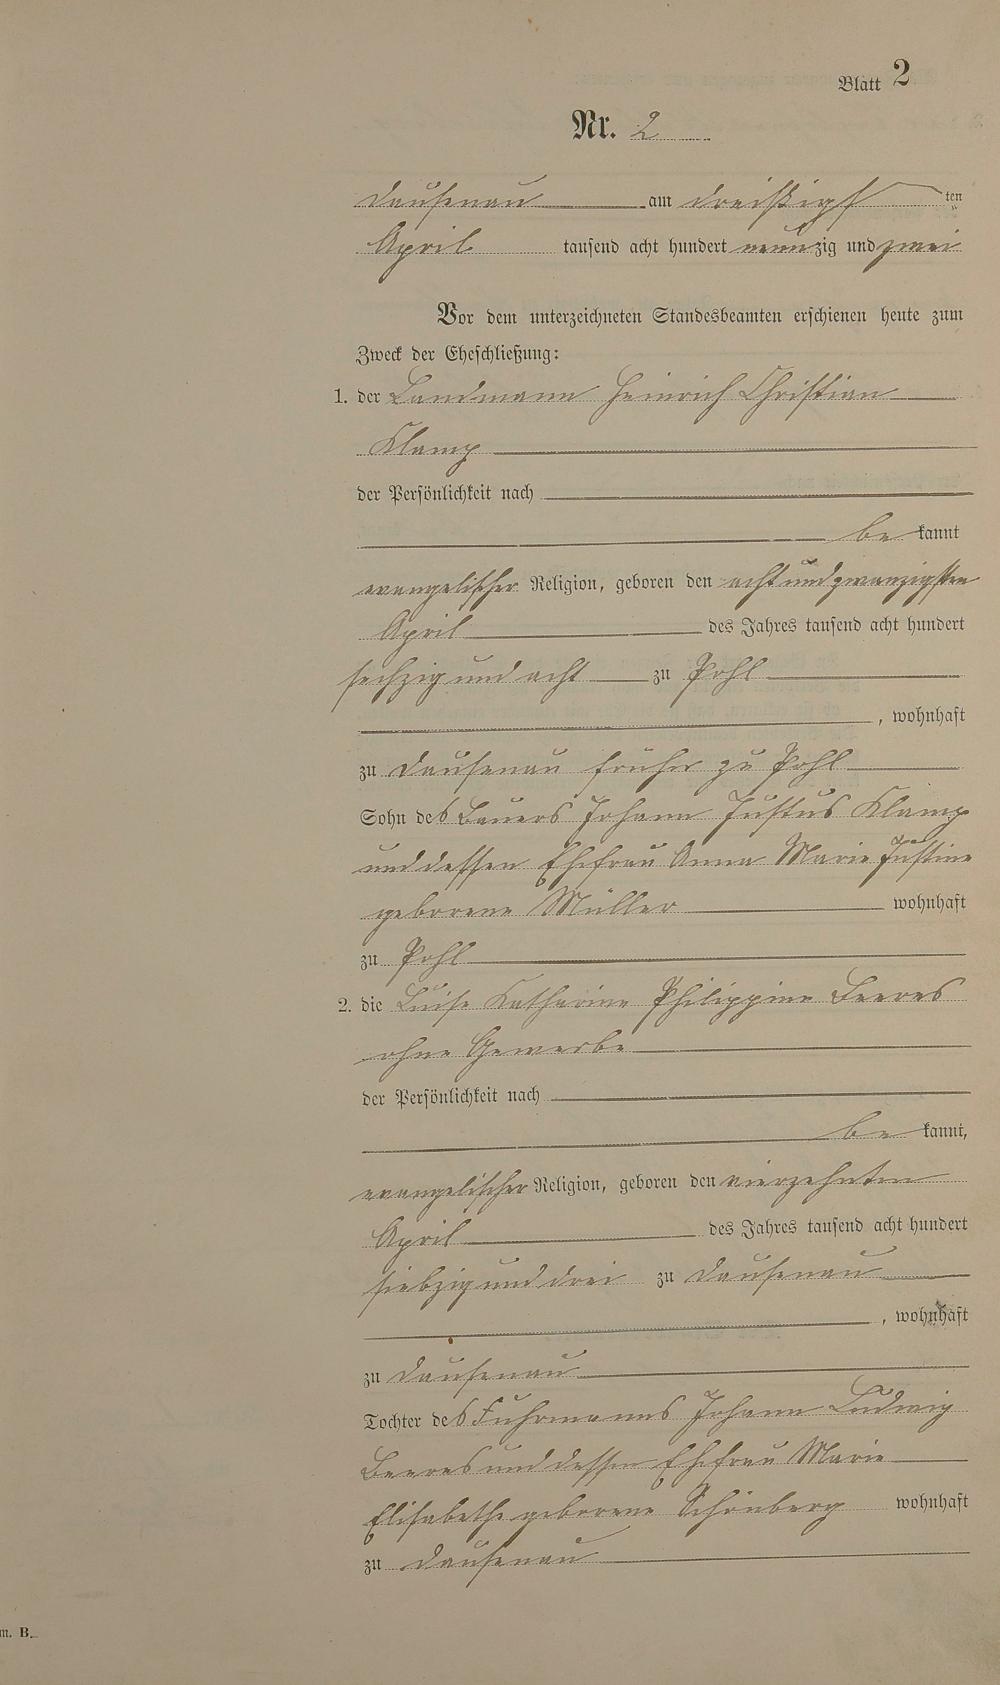 Blatt 2
Nr. 2
Dausenau am dreißigsten
April tausend acht hundert neunzig und zwei
Vor dem unterzeichneten Standesbeamten erschienen heute zum
Zweck der Eheschließung:
1. der Landmann Heinrich Christian
Klamp
der Persönlichkeit nach
bekannt
evangelischer Religion, geboren den acht und zwanzigsten
April des Jahres tausend acht hundert
sechzig und acht zu Pohl
, wohnhaft
zu Dausenau früher zu Pohl
Sohn des Bauers Johann Justus Klamp
und dessen Ehefrau Anna Marie Justine
geborene Müller wohnhaft
zu Pohl
2. die Luise Katharine Philippine Beeres
ohne Gewerbe
der Persönlichkeit nach
bekannt,
evangelischer Religion, geboren den vierzehnten
April des Jahres tausend acht hundert
siebzig und drei zu Dausenau
, wohnhaft
zu Dausenau
Tochter des Fuhrmanns Johann Ludwig
Beeres und dessen Ehefrau Marie
Elisabethe geborene Schönberg wohnhaft
zu Dausenau
m. B.